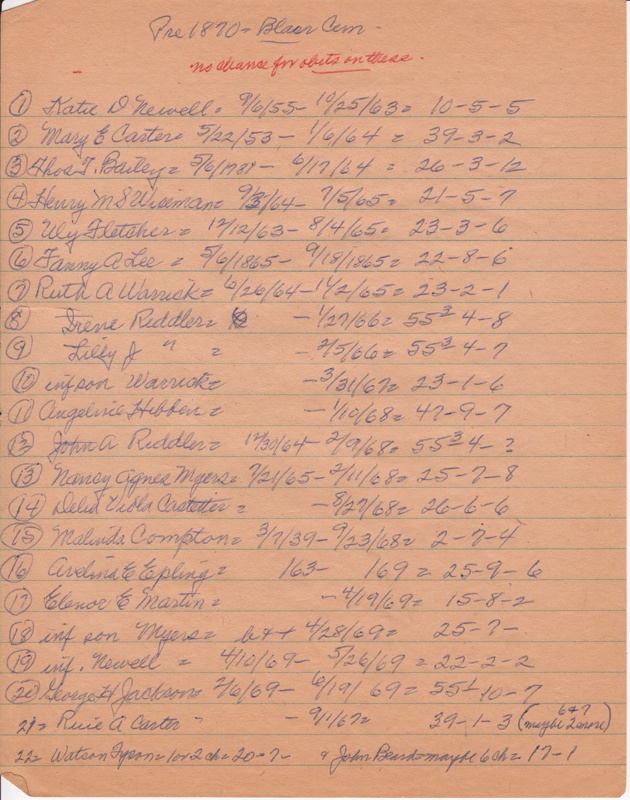 Pre 1870 = Blaor Cem
no chance for obits on these.
① Katie D Newell = 9/6/55 - 10/25/63 = 10-5-5
② Mary E Carter = 5/22/53 - 1/6/64 = 39-3-2
③ Thos T. Bailey = 5/6/ - 6/17/64 = 26-3-12
④ Henry M S Wiseman = 64 - 7/5/65 = 21-5-7
⑤ Wly Fletcher = 12/12/63 - 8/4/65 = 23-3-6
⑥ Fanny A Lee = 5/6/1865 - 9/18/1865 = 22-8-6
⑦ Ruth A Warrick = 6/26/64 - 11/2/65 = 23-2-1
⑧ Irene Riddler = - 1/27/66 = 55 3/4-8
⑨ Lilly J " = - 2/5/66 = 55 3/4-7
⑩ inf son Warrick = - 3/31/67 = 23-1-6
⑪ Angeline Hibben = - 1/10/68 = 47-9-7
⑫ John A Riddler = 12/30/64 - 2/9/68 = 55 3/4-?
⑬ Nancy Agnes Myers = 7/21/65 - 2/11/68 = 25-7-8
⑭ Delia Viola Castetter = - 8/27/68 = 26-6-6
⑮ Malinda Compton = 3/7/39 - 9/23/68 = 2-7-4
⑯ Avelina E Epling = 163 - 169 = 25-9-6
⑰ Elenor E Martin = - 4/19/69 = 15-8-2
⑱ inf son Myers = b & + 4/28/69 = 25-7-
⑲ inf. Newell = 4/10/69 - 5/26/69 = 22-2-2
⑳ George H Jackson = 2/6/69 - 6/19/69 = 55 1/10-7
21 = Ruie A Carter - 9/1/67 = 39-1-3 (6 & 7 maybe 2 more)
22 = Watson Tyson = 1 or 2 ch = 20-7- & John Beard = maybe 6 ch = 17-1